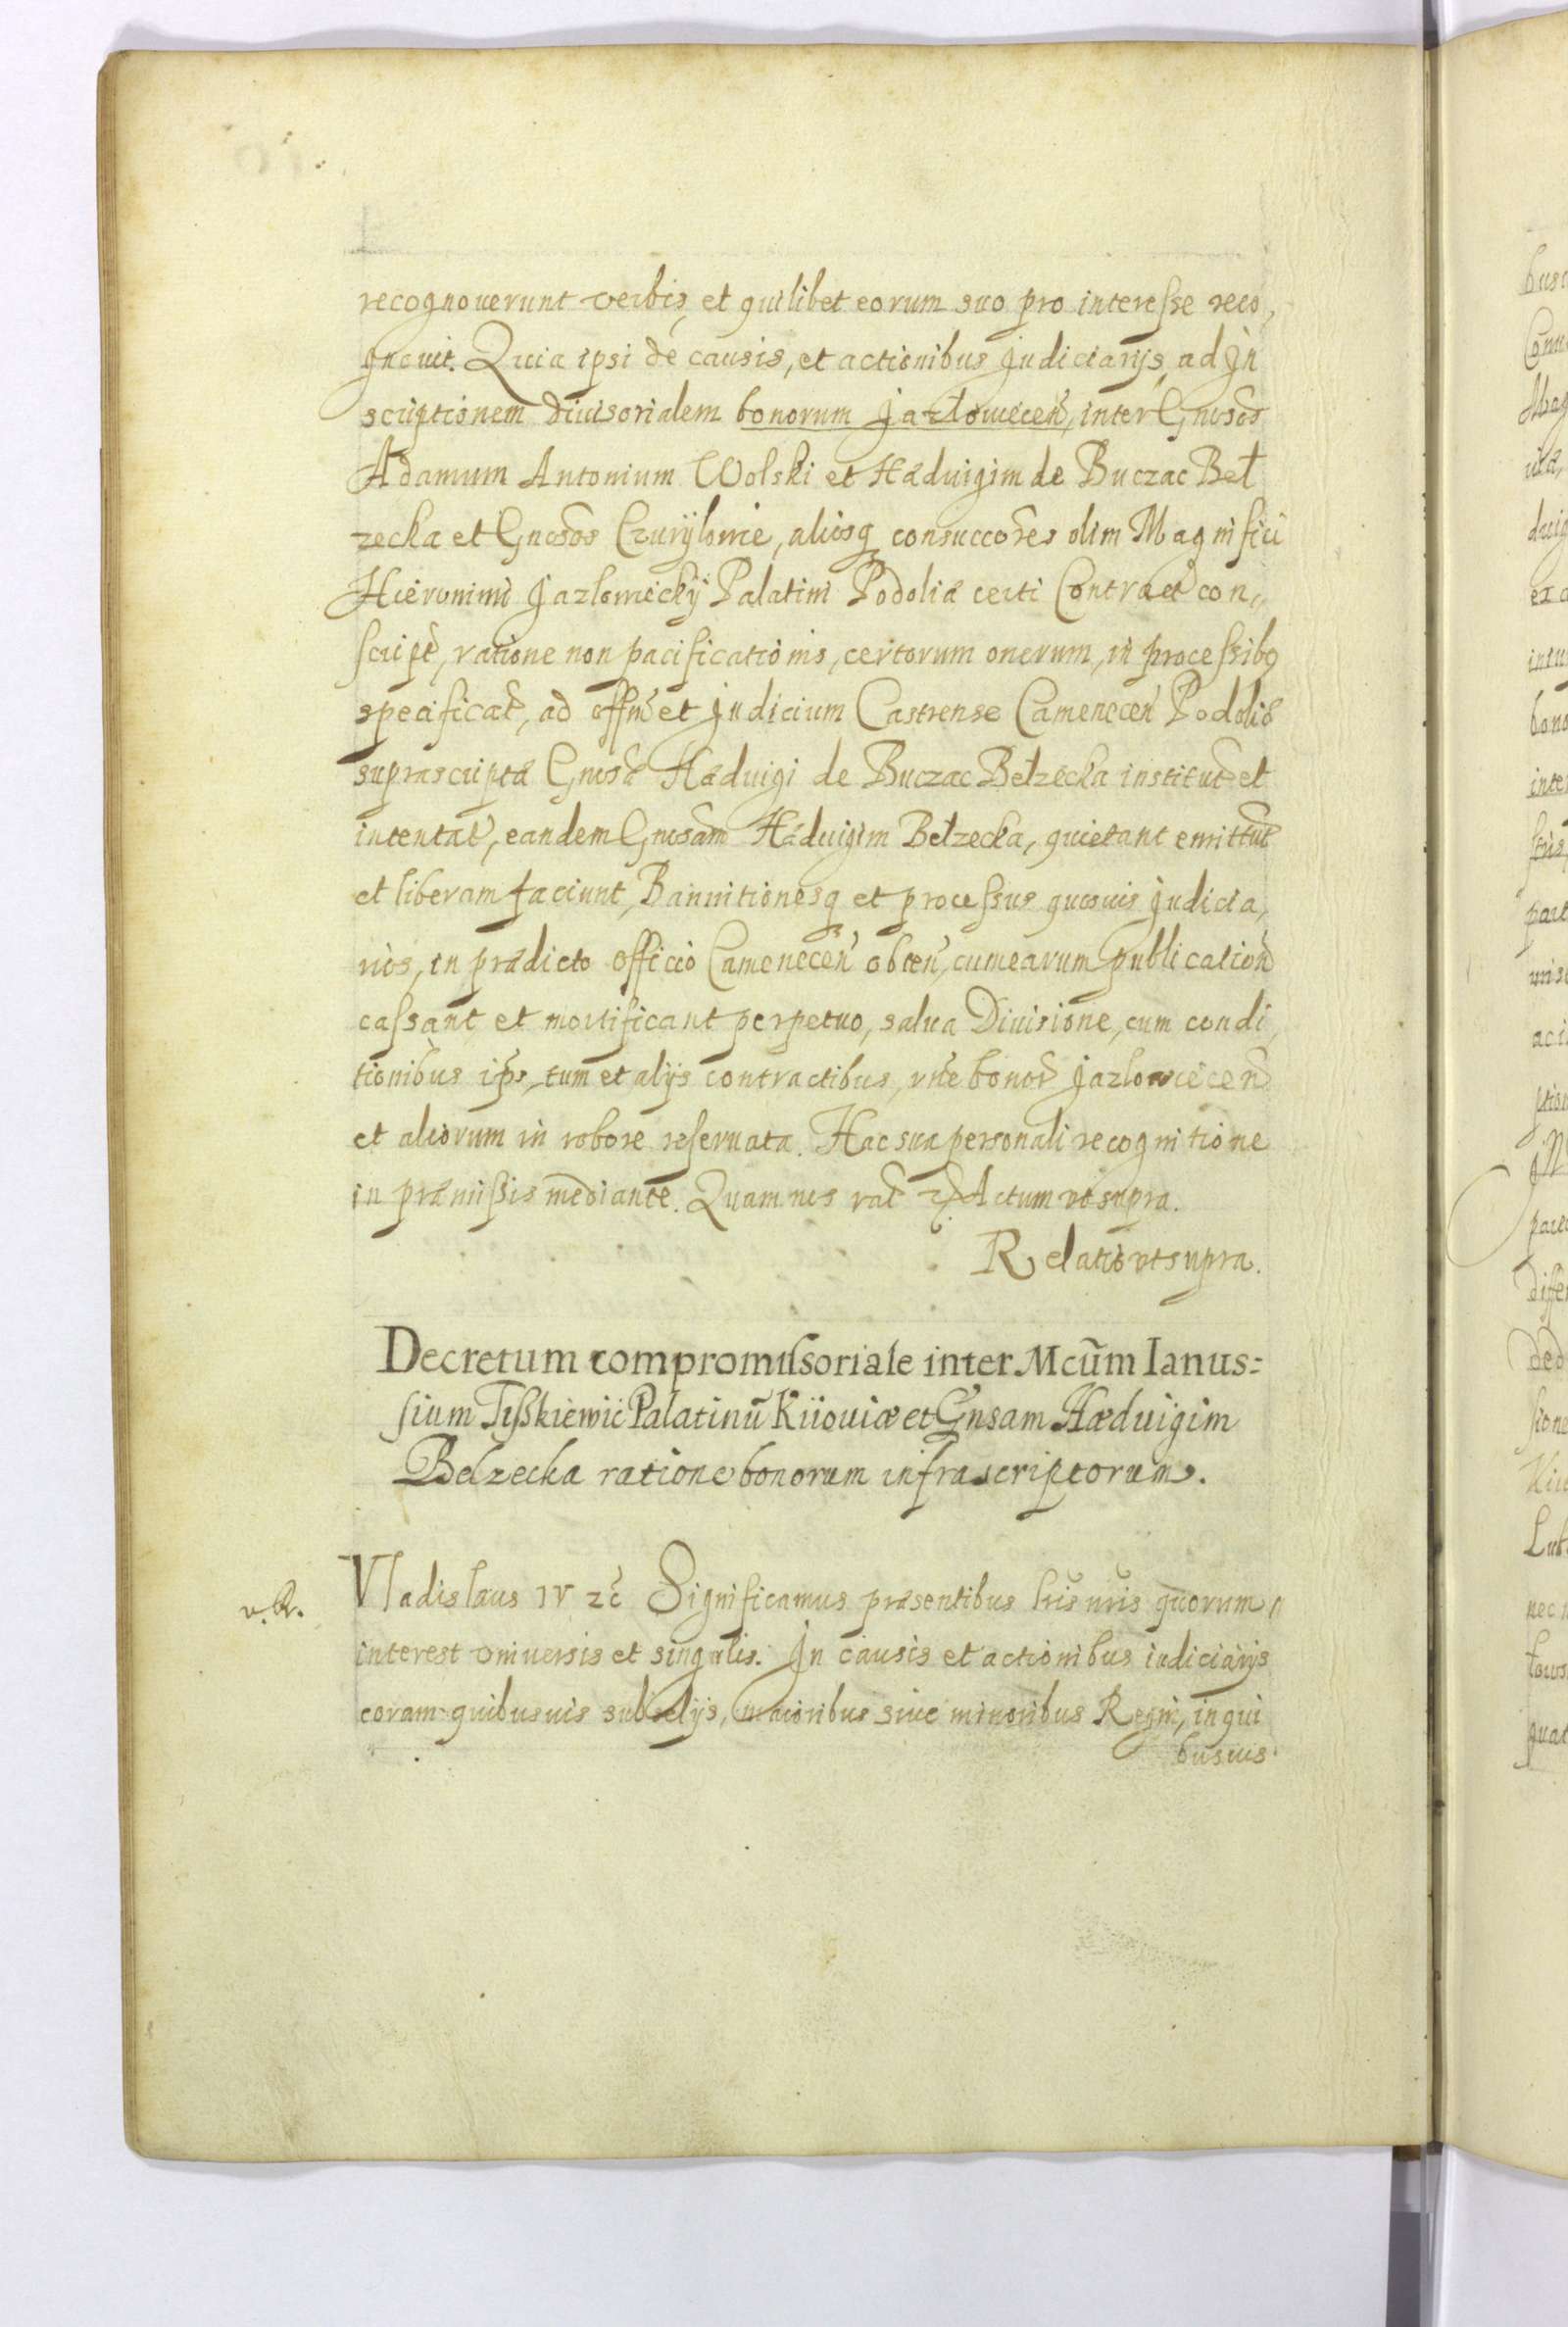 recognouerunt verbis, et quilibet eorum suo pro interesse reco,
gnouit. Quia ipsi de causis, et actionibus Judiciarijs, ad In
scriptionem diuisorialem bonorum Jazłowiecen̄, inter Gnosos
Adamum Antonium Wolski et Hæduigim de Buczac Beł
zecka et Gnosos Czuryłowie, aliosq consuccores olim Magnifici
Hieronimi Jazlowiecky Palatini Podoliæ certi Contract con,
script, ratione non pacificationis, certorum onerum, in processibq
specificat, ad offm et Judicium Castrense Camenecen̄ Podoliæ
suprascriptæ Gnosæ Hæduigi de Buczac Bełzecka institut et
intentat, eandem Gnosam Hæduigim Bełzecka, quietant emittut
et liberam faciunt, Bannitionesq et processus quosuis Judicia,
rios, in prædicto officio Camenecen̄ obten̄, cum earum publication̄
cassant et mortificant perpetuo, salua Diuisione, cum condi,
tionibus ips, tum et alijs contractibus, rne bonor Jazlowiecen̄
et aliorum in robore reseruata. Hac sua personali recognitione
in præmissis mediante. Quam nos rat zc Actum vt supra.
Relatio vt supra.
Decretum compromissoriale inter Mcūm Ianus=
sium Tyszkiewic Palatinū Kiiouiæ et Gnsam Hæduigim
Belzecka ratione bonorum infrascriptorum.
v. R.
Vladislaus IV zc Significamus præsentibus lris nris quorum
interest vniuersis et singulis. In causis et actionibus iudiciarijs
coram quibusuis subselijs, maioribus siue minoribus Regni, in qui
busuis